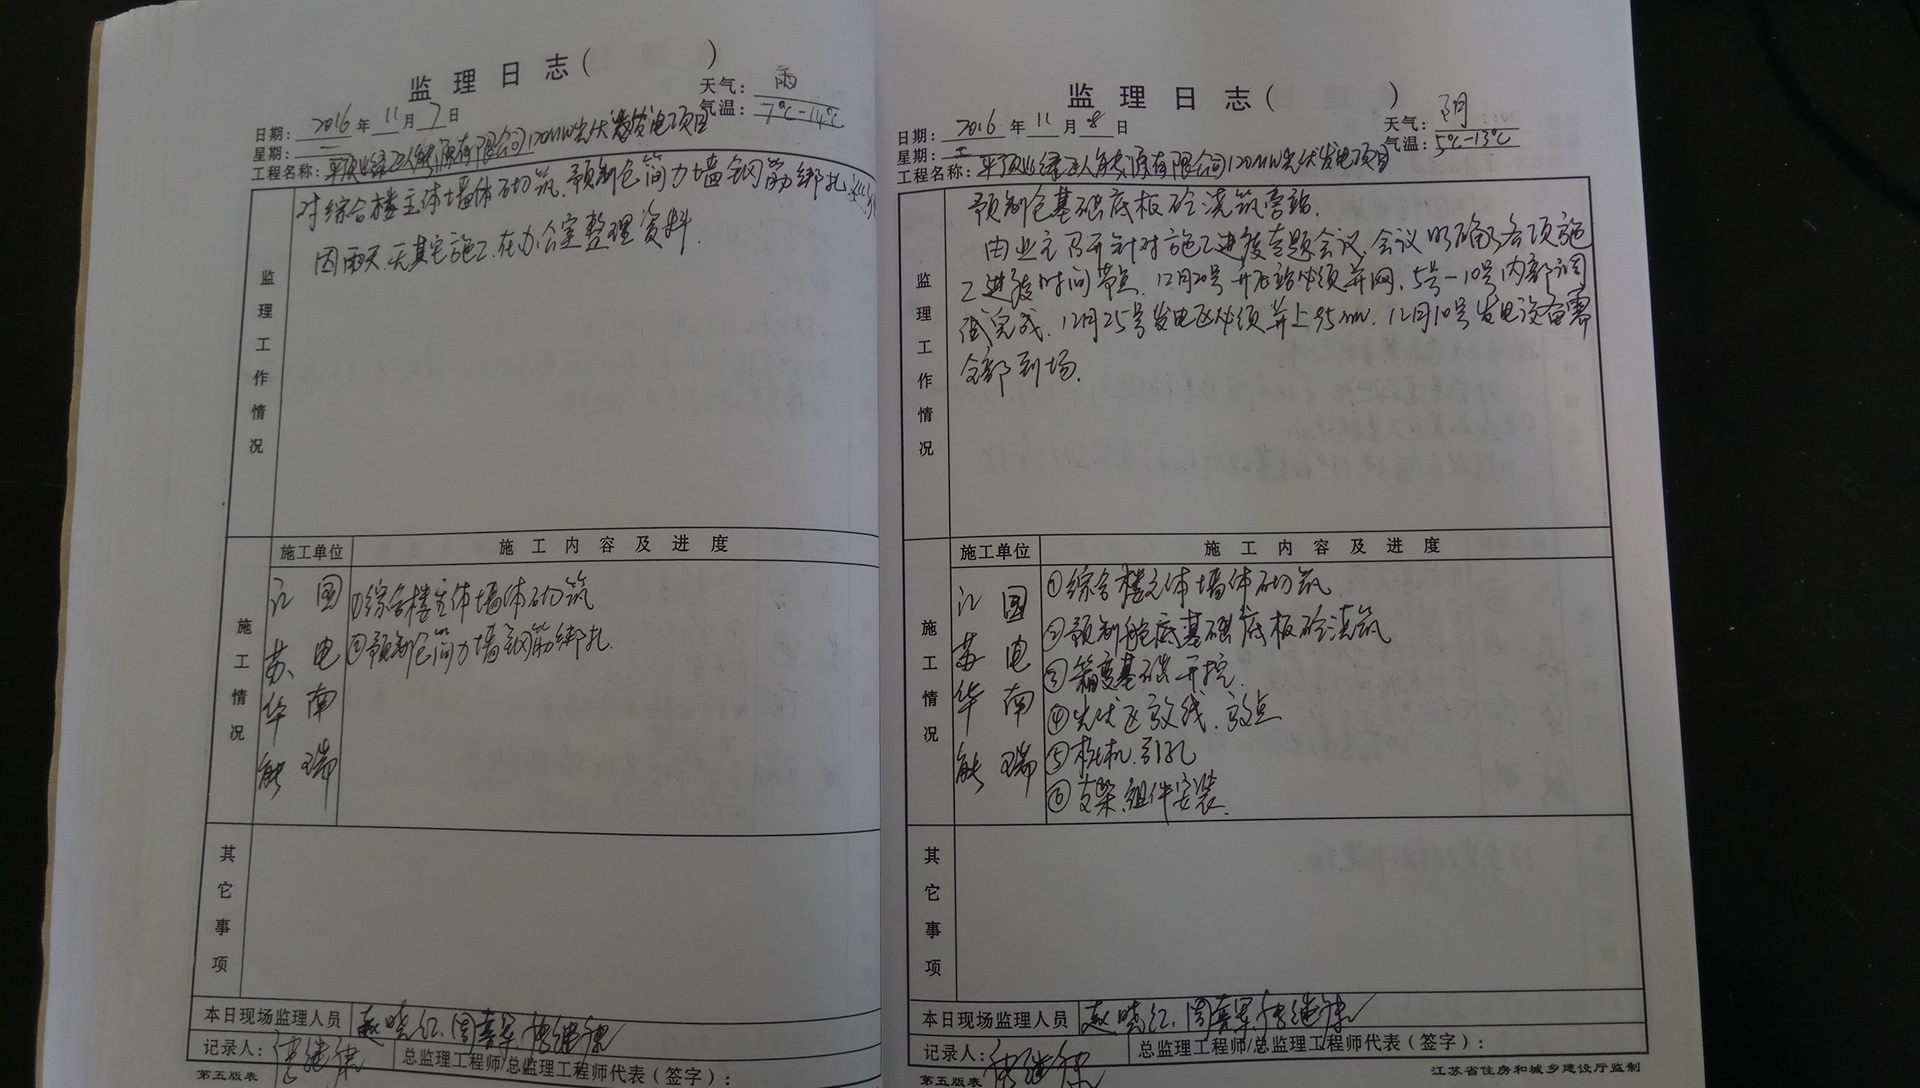 监理日志( )
日期: 2016 年 11 月 7 日
天气: 雨
星期: 一
气温: 7℃-14℃
工程名称: 平顶山绿 能源有限公司120MW光伏发电项目
监理工作情况
对综合楼主体墙体砌筑、预制仓简力墙钢筋绑扎
因雨天,无其它施工,在办公室整理资料.
施工情况
施工单位 施工内容及进度
江苏华能
国电南瑞
①综合楼主体墙体砌筑
②预制仓简力墙钢筋绑扎.
其它事项
本日现场监理人员 赵晓红、周
记录人:
总监理工程师/总监理工程师代表(签字):
第五版表
监理日志( )
日期: 2016 年 11 月 8 日
天气: 阴
星期: 二
气温: 5℃-13℃
工程名称: 平顶山绿 能源有限公司120MW光伏发电项目
监理工作情况
预制仓基础底板砼浇筑旁站.
由业主召开针对施工进度专题会议,会议明确了各项施
工进度时间节点,12月20号开 站必须并网,5号-10号内部调
试完成,12月25号发电区必须并上95mw,12月10号发电设备需
全部到场.
施工情况
施工单位 施工内容及进度
江苏华能
国电南瑞
①综合楼主体墙体砌筑
②预制舱底基础底板砼浇筑
③箱变基础开挖.
④光伏区放线、放点
⑤桩机引孔
⑥支架、组件安装.
其它事项
本日现场监理人员 赵晓红、周
记录人:
总监理工程师/总监理工程师代表(签字):
第五版表
江苏省住房和城乡建设厅监制